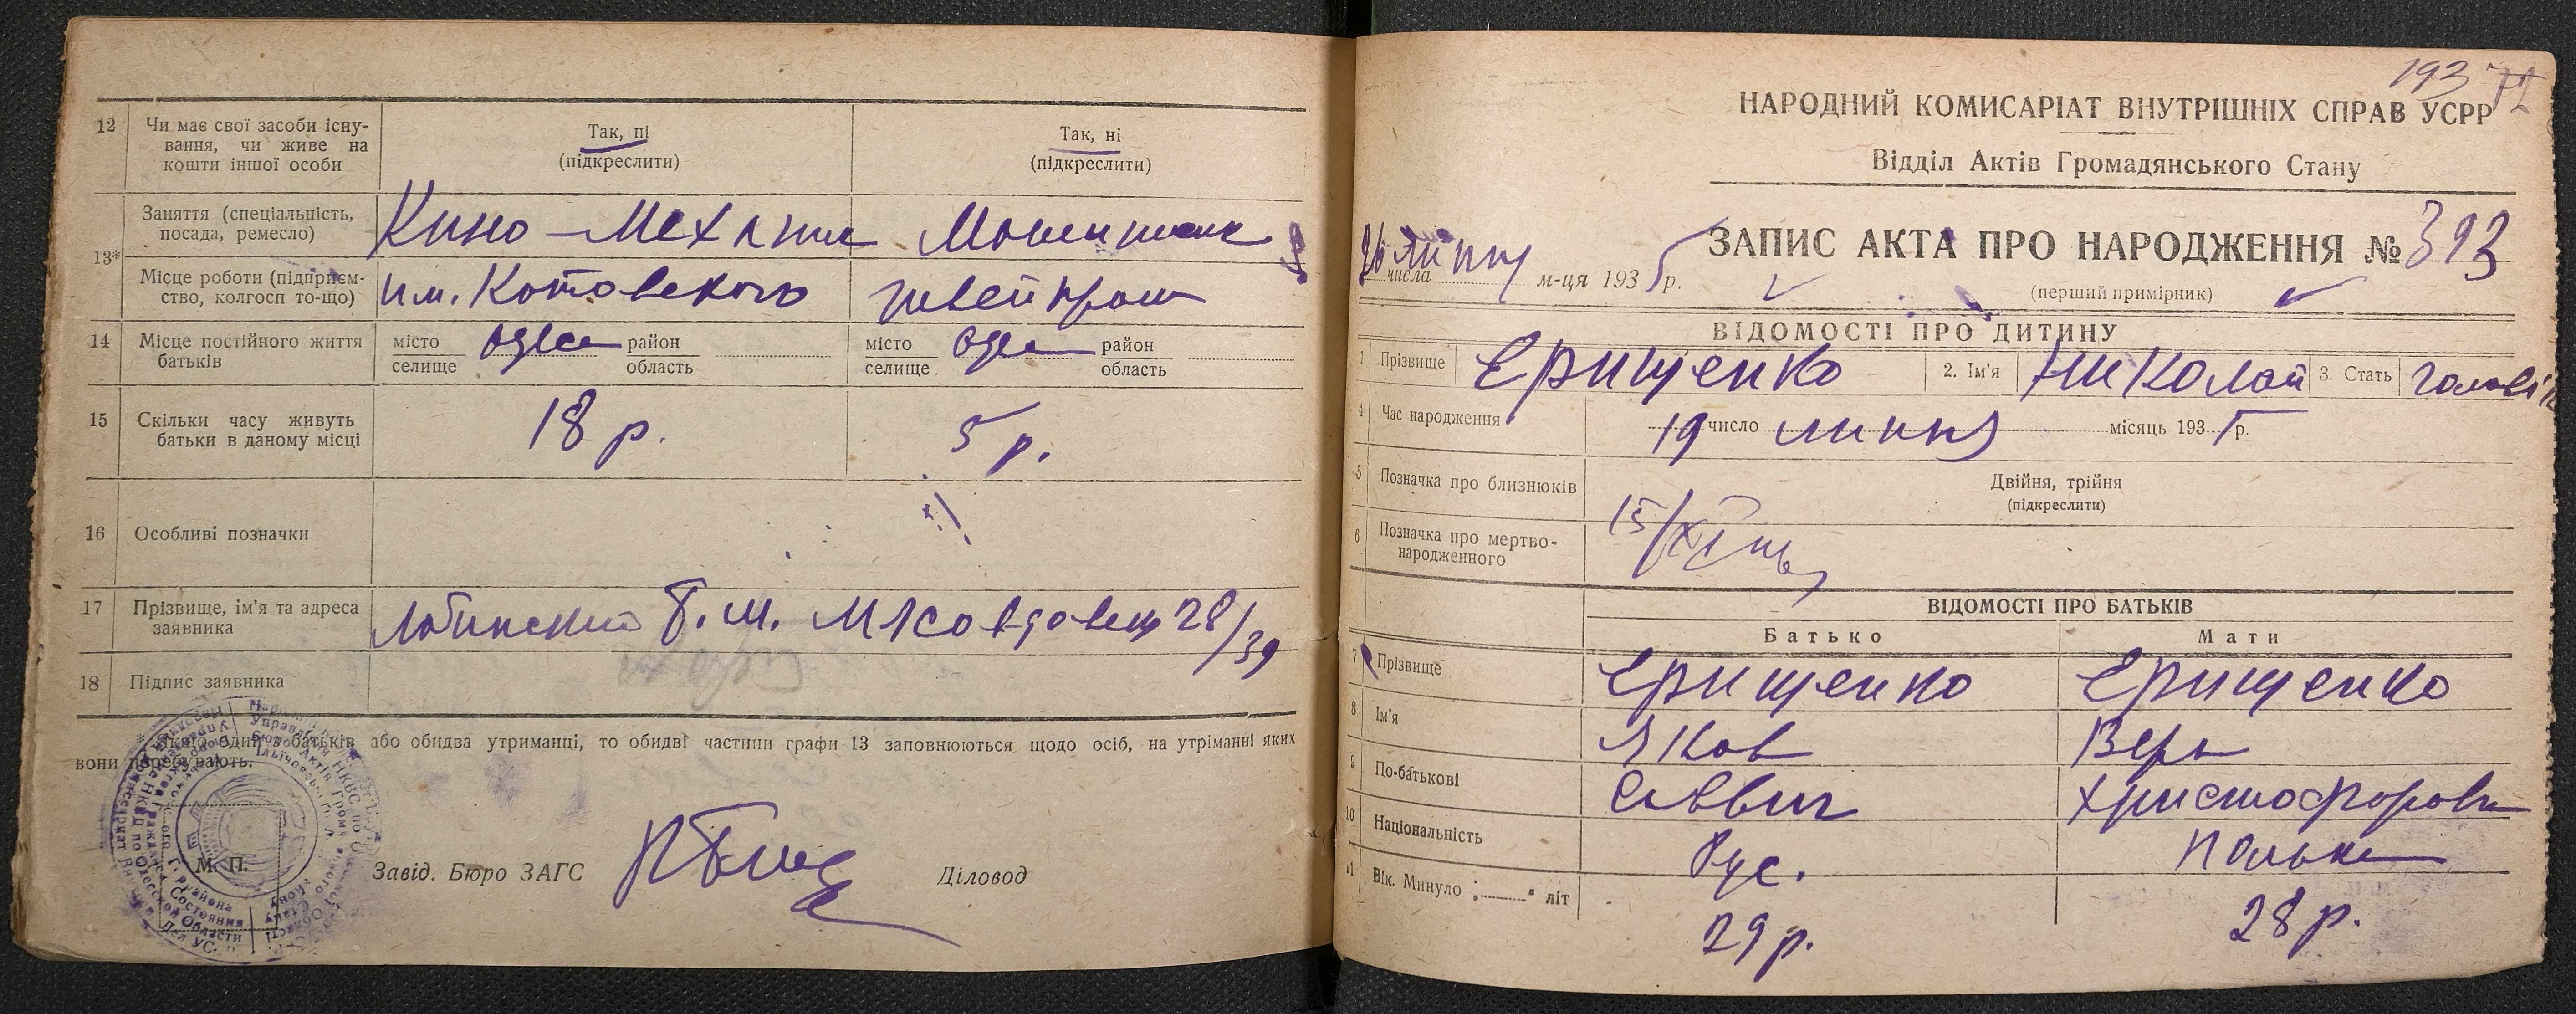 12
Чи має свої засоби існу-
вання, чи живе на
кошти іншої особи
Так, ні
(підкреслити)
Так, ні
(підкреслити)
13*
Заняття (спеціальність,
посада, ремесло)
Кино-Механик
Місце роботи (підприєм-
ство, колгосп то-що)
им. Котовского
швейпром
14
Місце постійного життя
батьків
місто
селище
Одеса
район
область
місто
селище
Одеса
район
область
15
Скільки часу живуть
батьки в даному місці
18 р.
5 р.
16
Особливі позначки
17
Прізвище, ім'я та адреса
заявника
28/39
18
Підпис заявника
* Якщо один з батьків або обидва утриманці, то обидві частини графи 13 заповнюються щодо осіб, на утриманні яких
вони перебувають.
М. П.
Завід. Бюро ЗАГС
Діловод
193
72
НАРОДНИЙ КОМИСАРІАТ ВНУТРІШНІХ СПРАВ УСРР
Відділ Актів Громадянського Стану
ЗАПИС АКТА ПРО НАРОДЖЕННЯ № 393
26 липня
числа
м-ця 1935 р.
(перший примірник)
ВІДОМОСТІ ПРО ДИТИНУ
1 Прізвище Ерищенко 2. Ім'я Николай 3. Стать
4 Час народження 19 число липня місяць 1935 р.
5 Позначка про близнюків
Двійня, трійня
(підкреслити)
6 Позначка про мертво-
народженного
15/XI
ВІДОМОСТІ ПРО БАТЬКІВ
Батько Мати
7 Прізвище Ерищенко Ерищенко
8 Ім'я Яков Вера
9 По-батькові Саввич Христофоровна
10 Національність Рус. Полька
11 Вік. Минуло „ “ літ 29 р. 28 р.